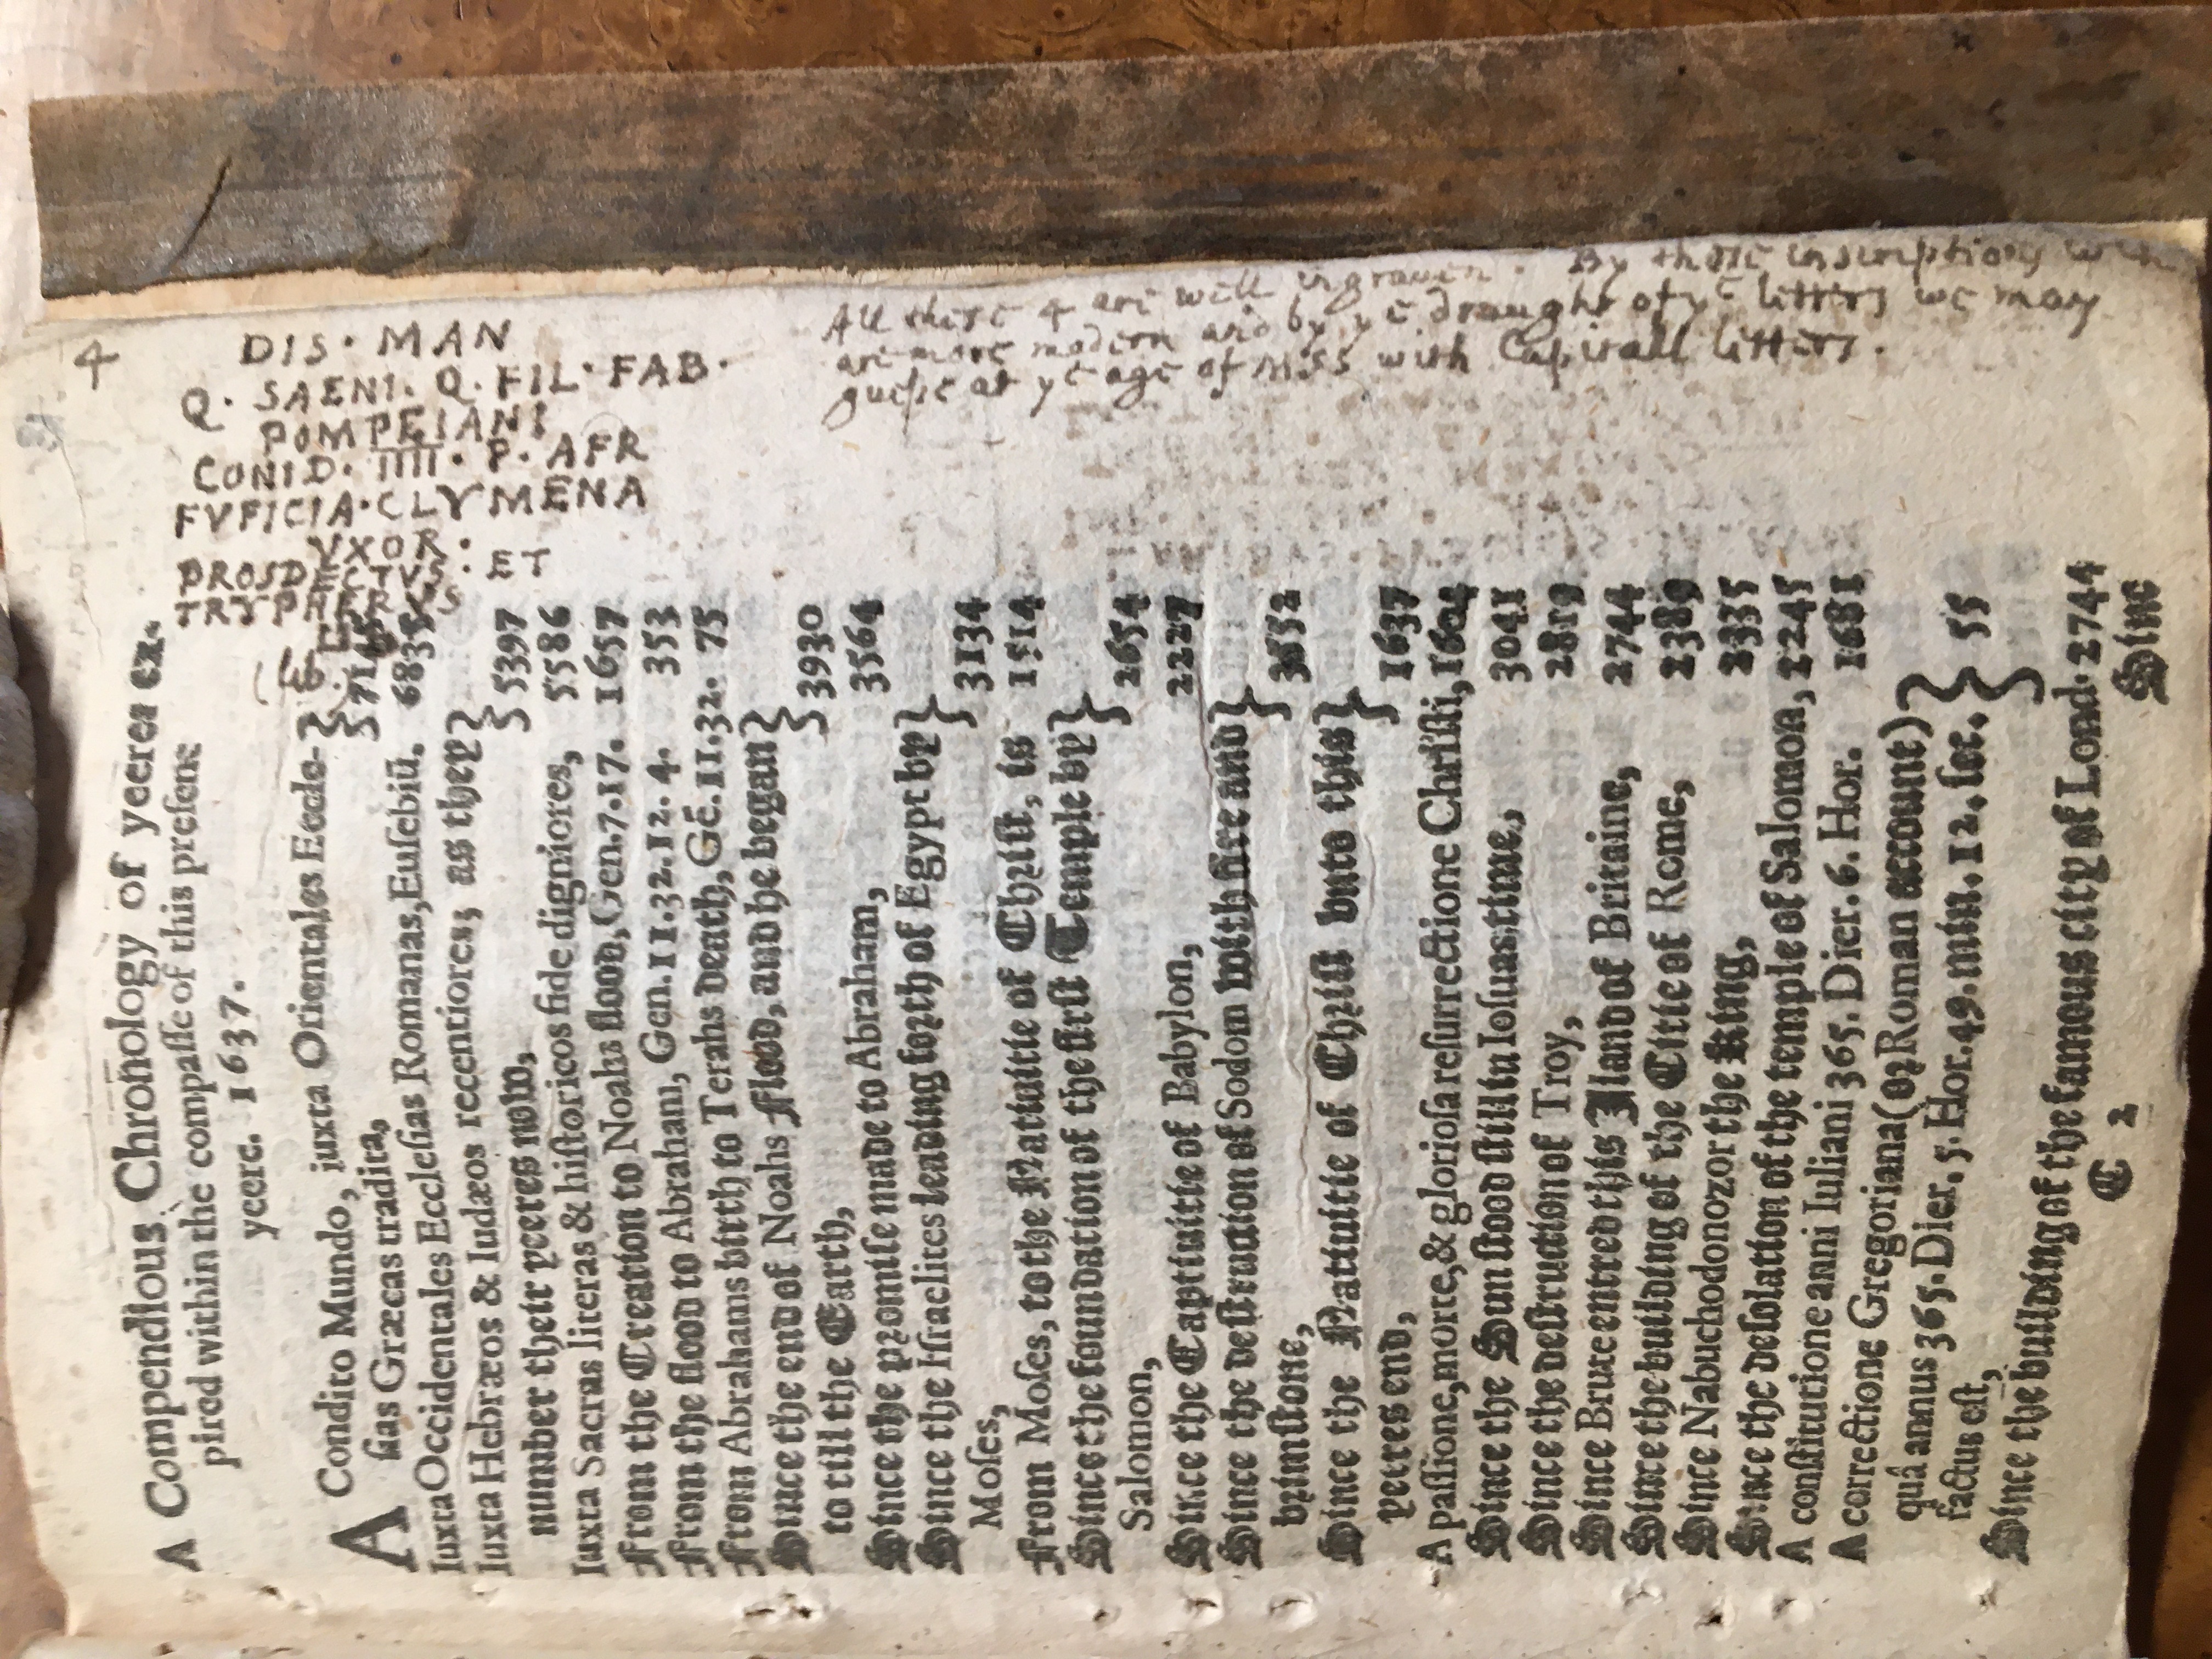 4
DIS · MAN
Q · SAENI · Q · FIL · FAB ·
POMPEIANI
CONID · IIII · P · AFR
FVFICIA · CLYMENA
VXOR :
PROSDECTVS : ET
All these 4 are well ingraven . By these inscriptions
are more modern and by yᵉ draught of yᵉ letters we may
guesse at yᵉ age of MSS with Capitall letters .
A Compendious Chronology of yeeres ex-
pired within the compaſſe of this preſent
yeere. 1637.
A Condito Mundo, juxta Orientales Eccle-
ſias Græcas tradita,
Iuxta Occidentales Eccleſias Romanas, Euſebiũ, 6835
Iuxta Hebræos & Iudæos recentiores; as they
number their yeeres now, } 5397
Iuxta Sacras literas & hiſtoricos fide digniores, 5586
From the Creation to Noahs flood, Gen.7.17. 1657
From the flood to Abraham, Gen.11.32.12.4. 353
From Abrahams birth to Terahs death, Gẽ.11.32. 75
Since the end of Noahs Flood, and he began
to till the Earth, } 3930
Since the promiſe made to Abraham, 3564
Since the Iſraelites leading forth of Egypt by
Moſes, } 3134
From Moſes, to the Natiuitie of Chriſt, is 1514
Since the foundation of the firſt Temple by
Salomon, } 2654
Since the Captiuitie of Babylon, 2227
Since the deſtruction of Sodom with fire and
brimſtone, } 3552
Since the Natiuitie of Chriſt vnto this
yeeres end, } 1637
A paſſione, morte, & glorioſa reſurrectione Chriſti, 1604
Since the Sun ſtood ſtill in Ioſuas time, 3041
Since the deſtruction of Troy, 2819
Since Brute entred this Iland of Britaine, 2744
Since the building of the Citie of Rome, 2389
Since Nabuchodonozor the King, 2335
Since the deſolation of the temple of Salomon, 2245
A conſtitutione anni Iuliani 365. Dier. 6. Hor. 1681
A correctione Gregoriana (or Roman account)
quâ annus 365. Dier. 5. Hor. 49. min. 12. ſec.
factus eſt, } 55
Since the building of the famous city of Lond. 2744
C 2 Sinc